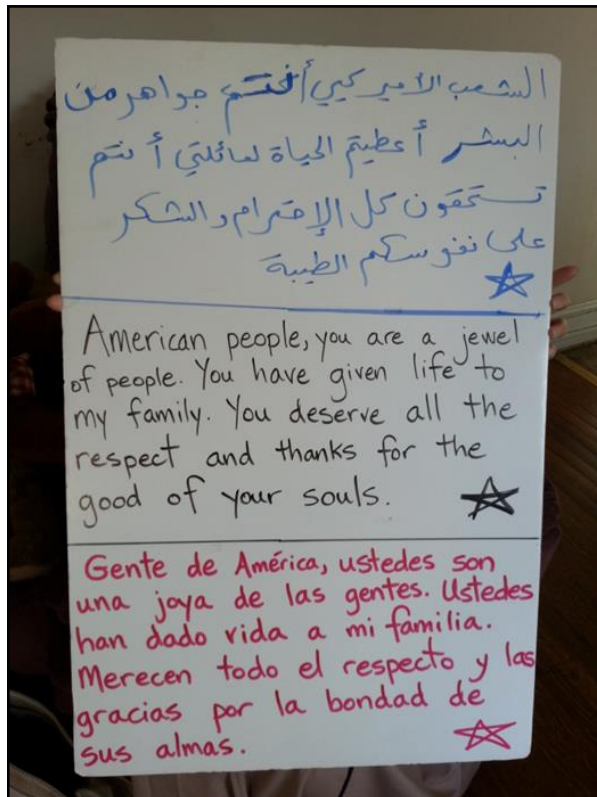 الشعب الأميركي أنتم جواهر من
البشر أعطيتم الحياة لعائلتي أنتم
تستحقون كل الإحترام والشكر
على نفوسكم الطيبة
American people, you are a jewel
of people. You have given life to
my family. You deserve all the
respect and thanks for the
good of your souls.
Gente de América, ustedes son
una joya de las gentes. Ustedes
han dado vida a mi familia.
Merecen todo el respecto y las
gracias por la bondad de
sus almas.